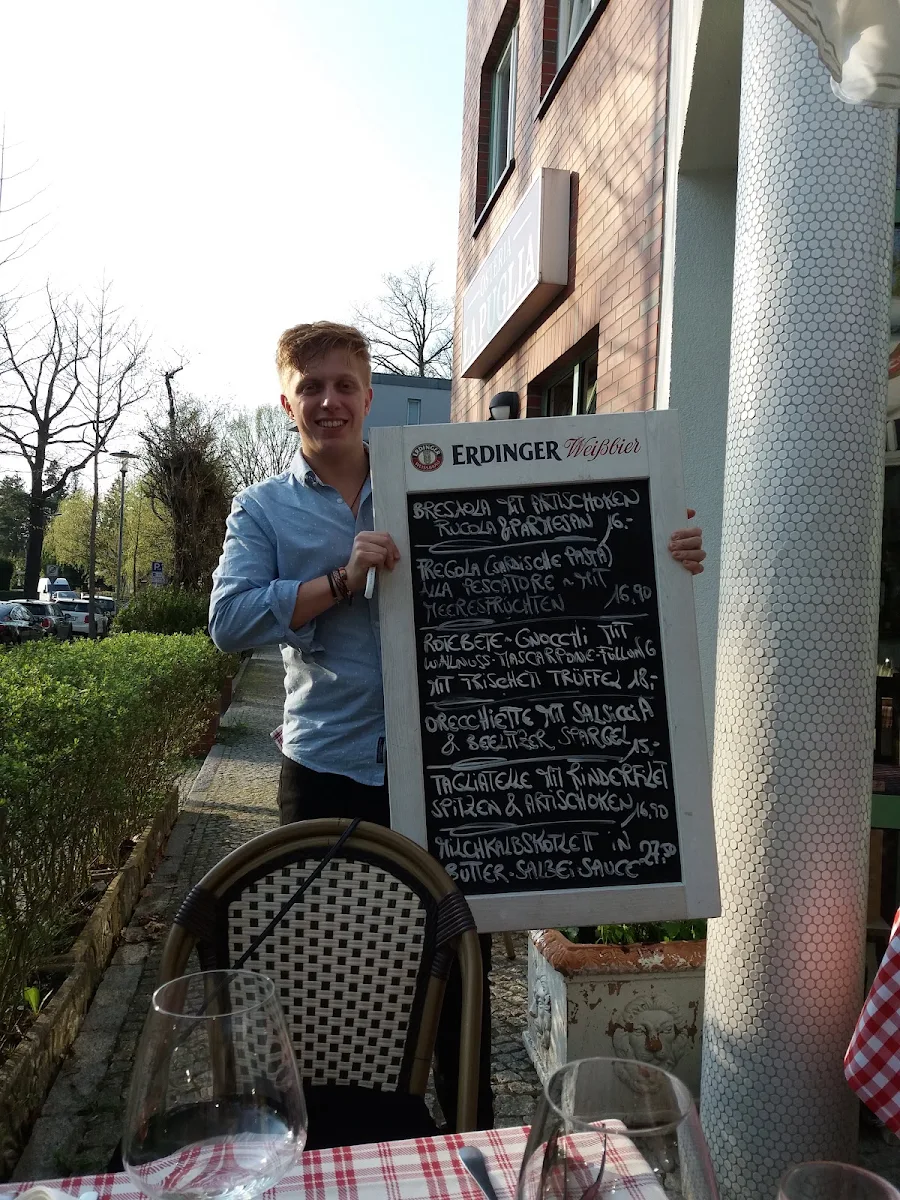 OSTERIA
LA PUGLIA
ERDINGER Weißbier
BRESAOLA MIT ARTISCHOKEN
RUCOLA & PARMESAN 16.-
FREGOLA (SARDISCHE PASTA)
ALLA PESCATORE ~ MIT
MEERESFRÜCHTEN 16,90
ROTEBETE-GNOCCHI MIT
WALNUSS-MASCARPONE-FÜLLUNG
MIT FRISCHEN TRÜFFEL 18,-
ORECCHIETTE MIT SALSICCIA
& BEELITZER SPARGEL 15,-
TAGLIATELLE MIT RINDERFILET
SPITZEN & ARTISCHOKEN 16,90
MILCHKALBSKOTLETT IN
BUTTER-SALBEI SAUCE 27,50